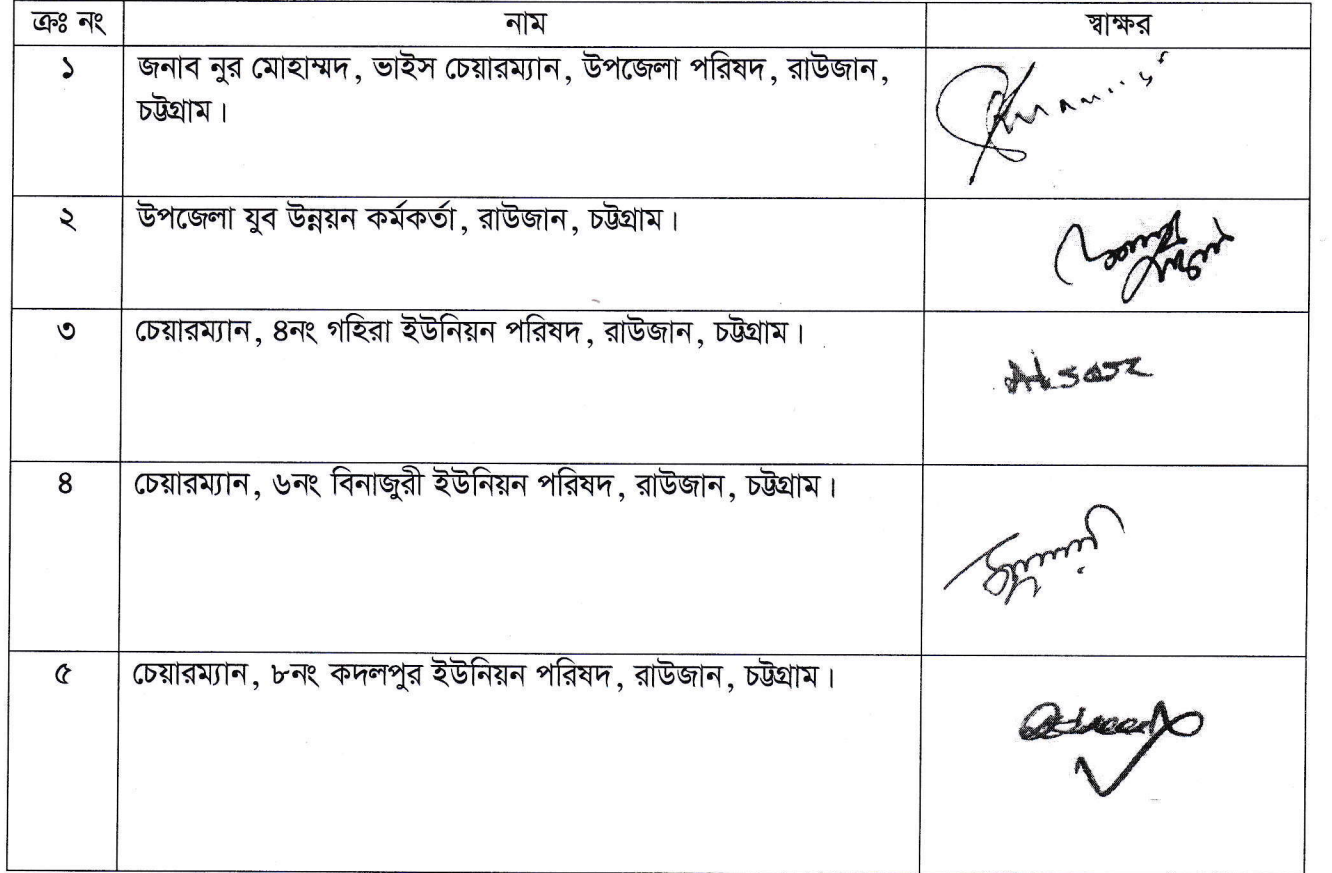 ক্রঃ নং নাম স্বাক্ষর
১ জনাব নুর মোহাম্মদ, ভাইস চেয়ারম্যান, উপজেলা পরিষদ, রাউজান,
চট্টগ্রাম।
২ উপজেলা যুব উন্নয়ন কর্মকর্তা, রাউজান, চট্টগ্রাম।
৩ চেয়ারম্যান, ৪নং গহিরা ইউনিয়ন পরিষদ, রাউজান, চট্টগ্রাম।
৪ চেয়ারম্যান, ৬নং বিনাজুরী ইউনিয়ন পরিষদ, রাউজান, চট্টগ্রাম।
৫ চেয়ারম্যান, ৮নং কদলপুর ইউনিয়ন পরিষদ, রাউজান, চট্টগ্রাম।